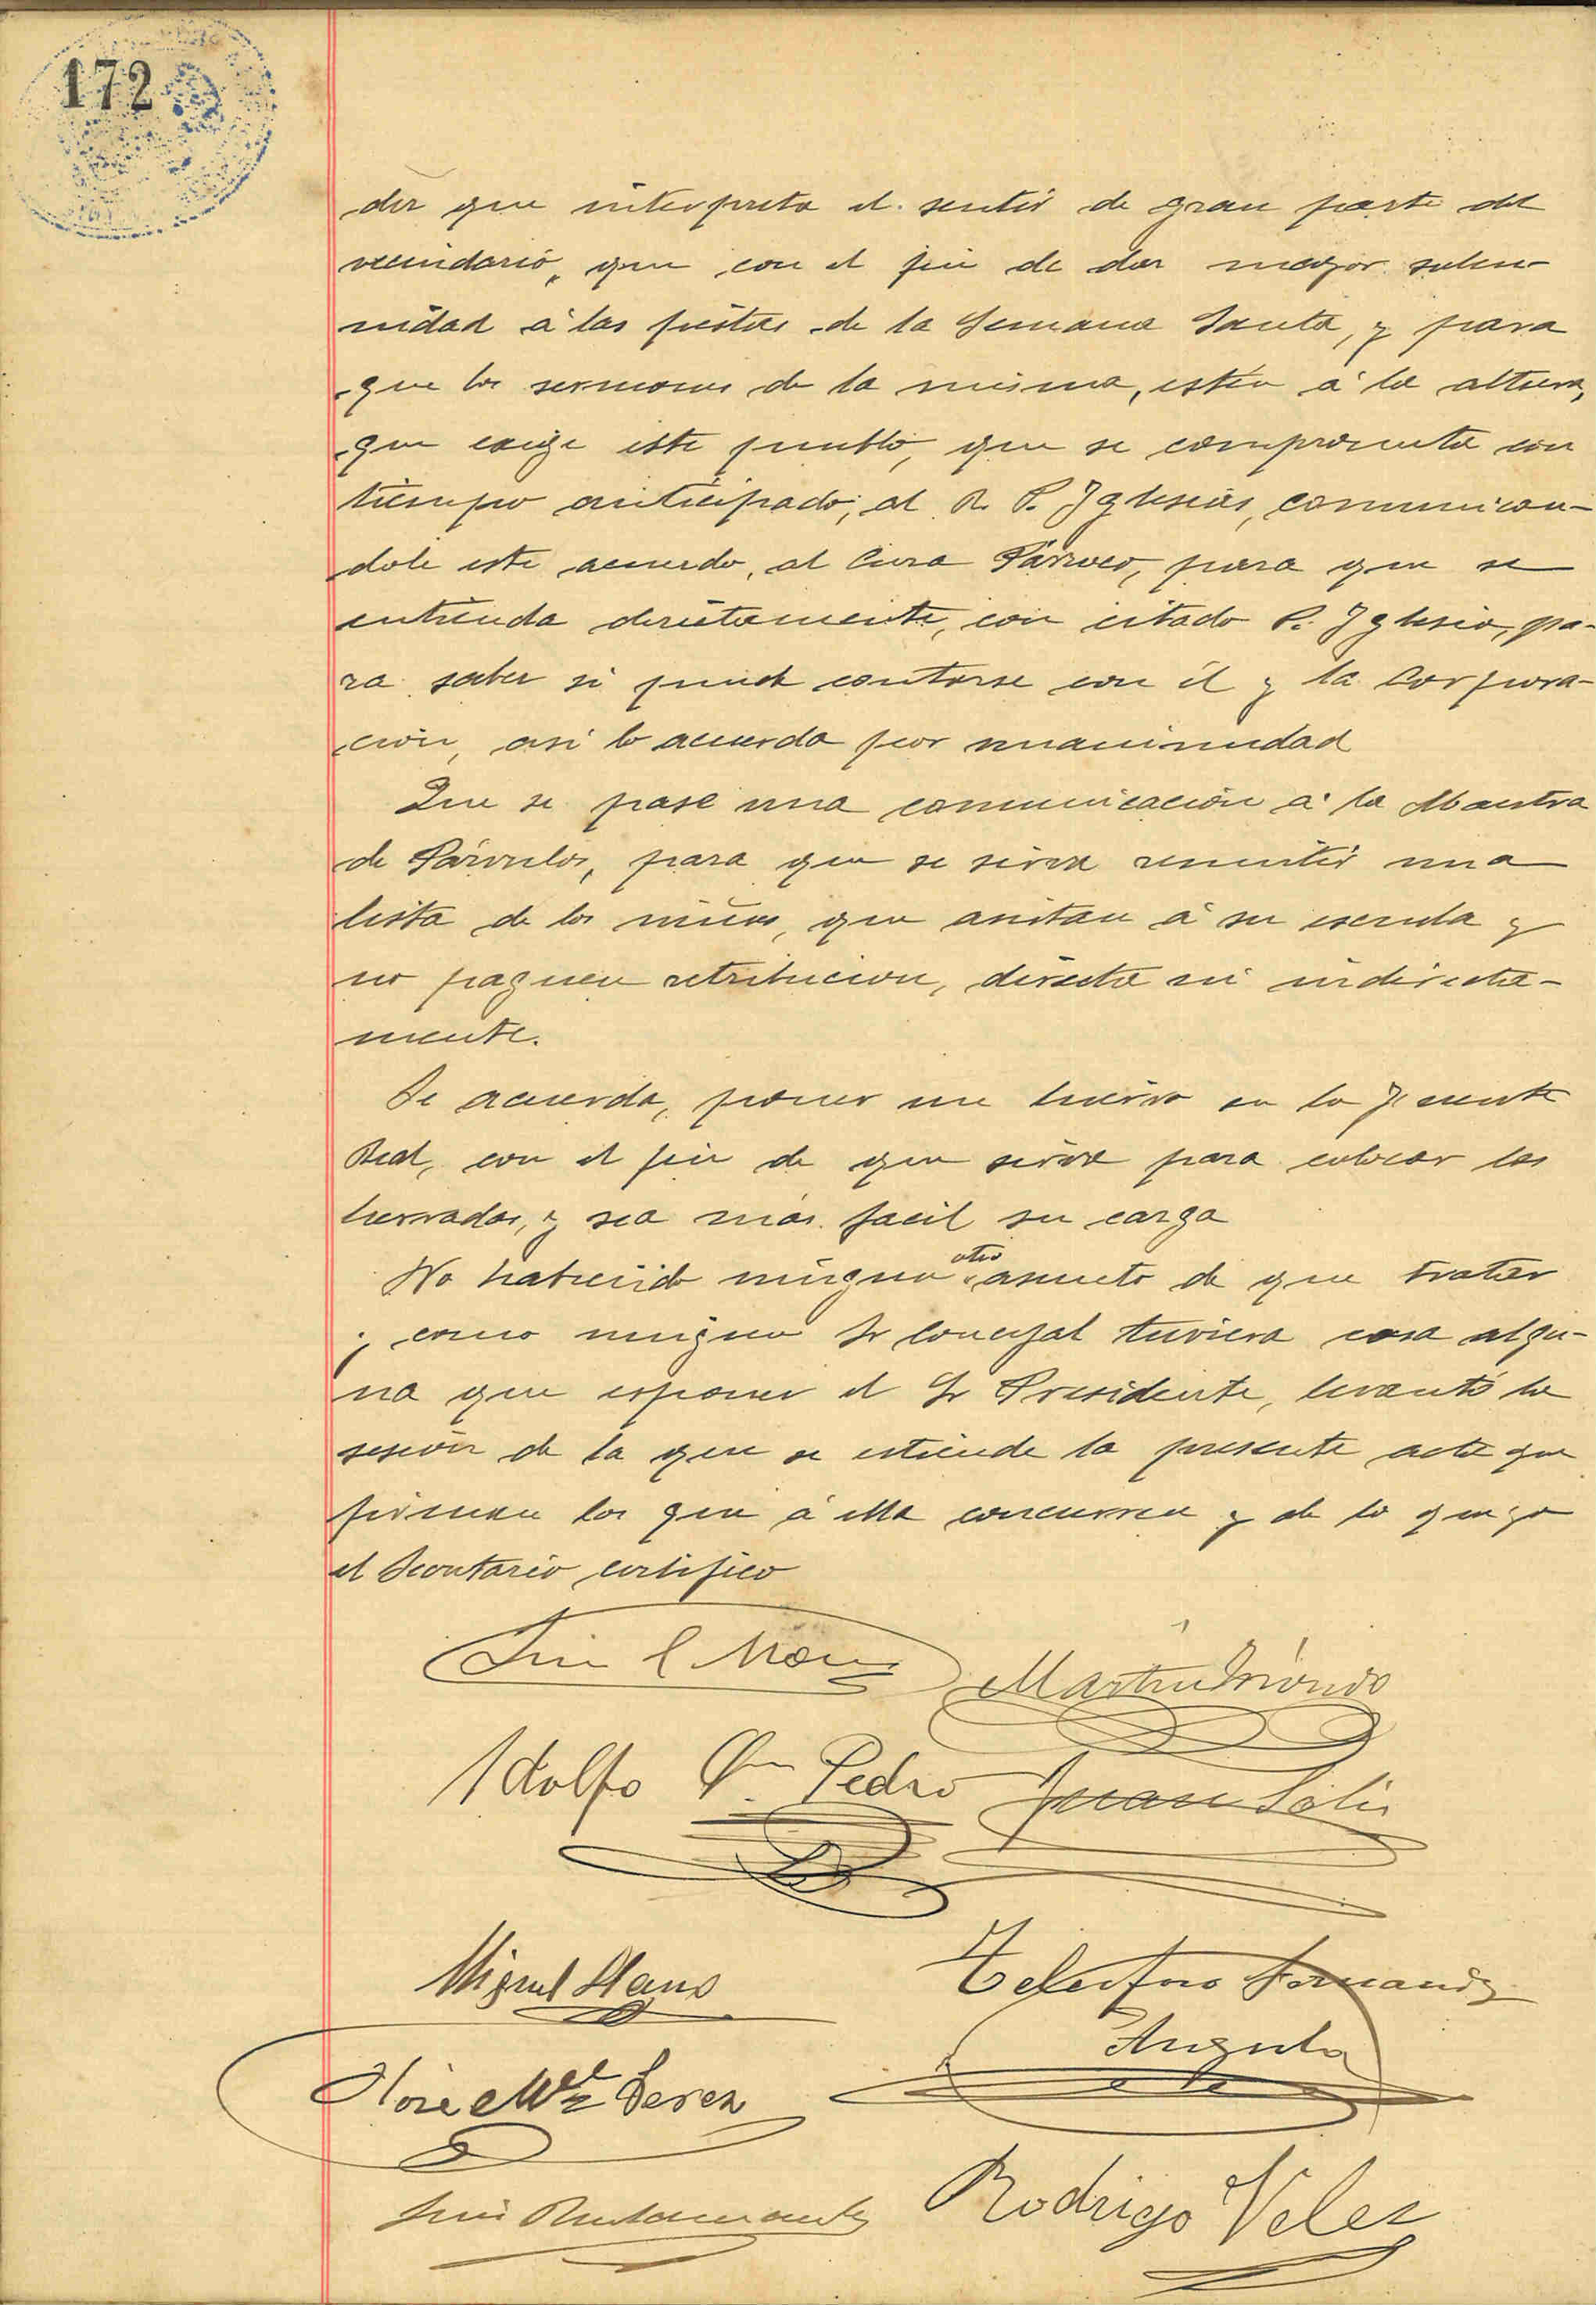 172
der que interpreta el sentir de gran parte del
vecindario, que con el fin de dar mayor solem-
nidad á las fiestas de la Semana Santa, y para
que los sermones de la misma, estén á la altura,
que exige este pueblo, que se comprometa con
tiempo anticipado, al R. P. Iglesias, comunican-
dole este acuerdo, al Cura Párroco, para que se
entienda directamente, con citado P. Iglesias, pa-
ra saber si puede contarse con él y la Corpora-
ción, asi lo acuerda por unanimidad
Que se pase una comunicación á la Maestra
de Párvulos, para que se sirva remitir una
lista de los niños, que asistan á su escuela y
no paguen retribucion, directa ni indirecta-
mente.
Se acuerda, poner un hierro en la fuente
Real, con el fin de que sirva para colocar las
herradas, y sea más facil su carga
No habiendo ningun otro asunto de que tratar
y como ningun Sr Concejal tuviera cosa algu-
na que esponer el Sr Presidente, levantó la
sesión de la que se estiende la presente acta que
firman los que á ella concurren y de lo que yo
el Secretario certifico
Martin Iriondo
Adolfo Pedro Juan Solis
Miguel Llano Telesforo Fernandez
Angula
Jose Mª Perez
Luis Bustamante Rodrigo Velez